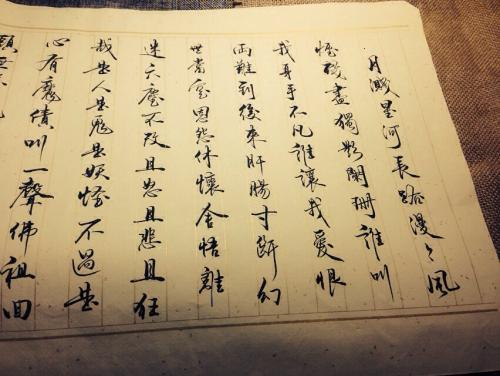 月濺星河長路漫々風
煙殘盡獨影闌珊誰叫
我身手不凡誰讓我愛恨
兩難到後來肝腸寸斷幻
世當空恩怨休懷舍悟離
迷六塵不改且怒且悲且狂
哉是人是鬼是妖怪不過是
心有魔債叫一聲佛祖回
頭無